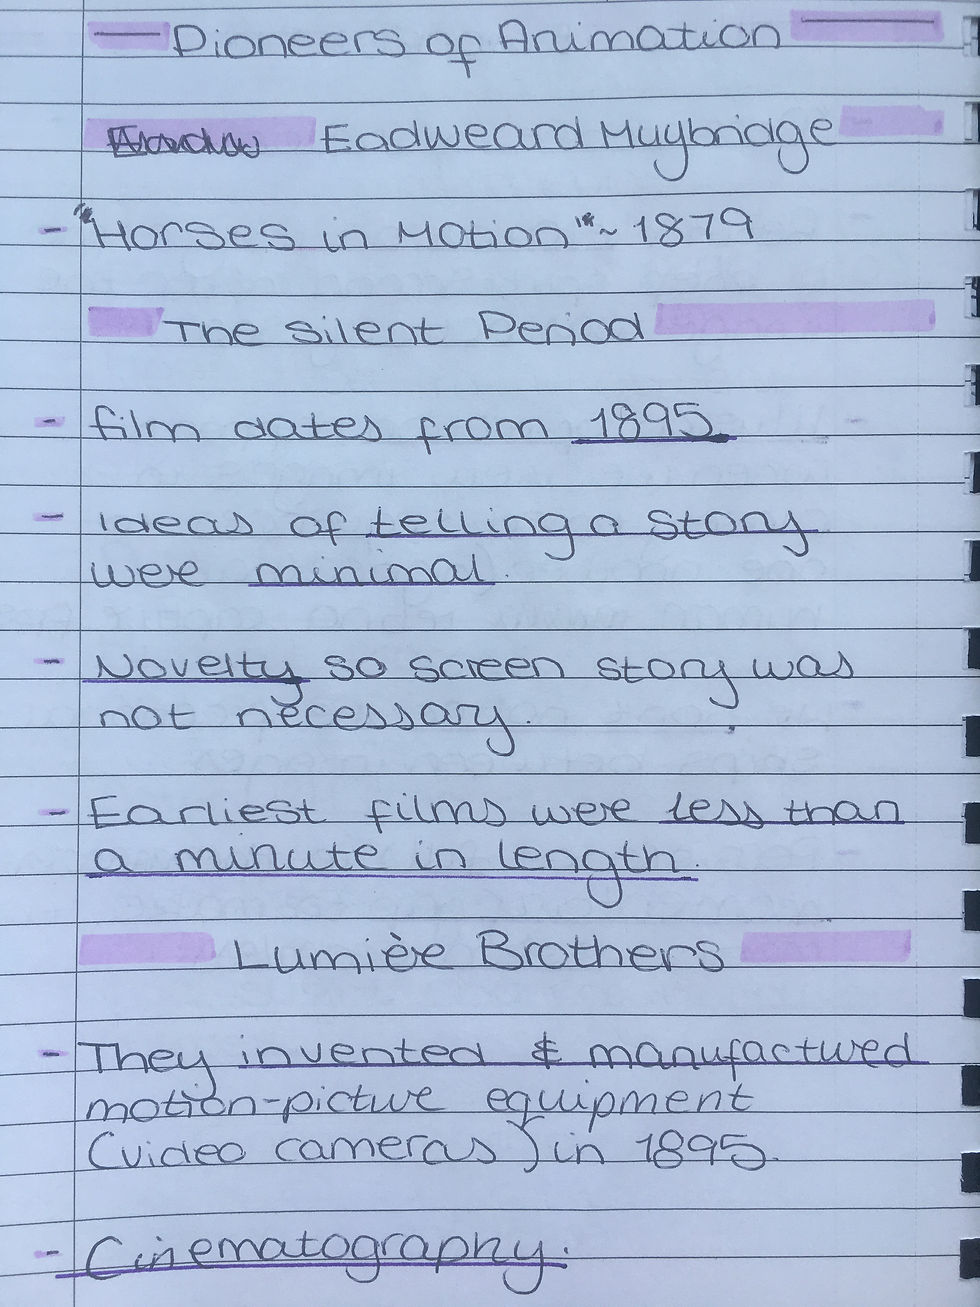 Pioneers of Animation
Eadweard Muybridge
- "Horses in Motion" ~ 1879
The Silent Period
- film dates from 1895.
- Ideas of telling a story
were minimal.
- Novelty so screen story was
not necessary.
- Earliest films were less than
a minute in length.
Lumière Brothers
- They invented & manufactured
motion-picture equipment
(video cameras) in 1895.
- Cinematography.